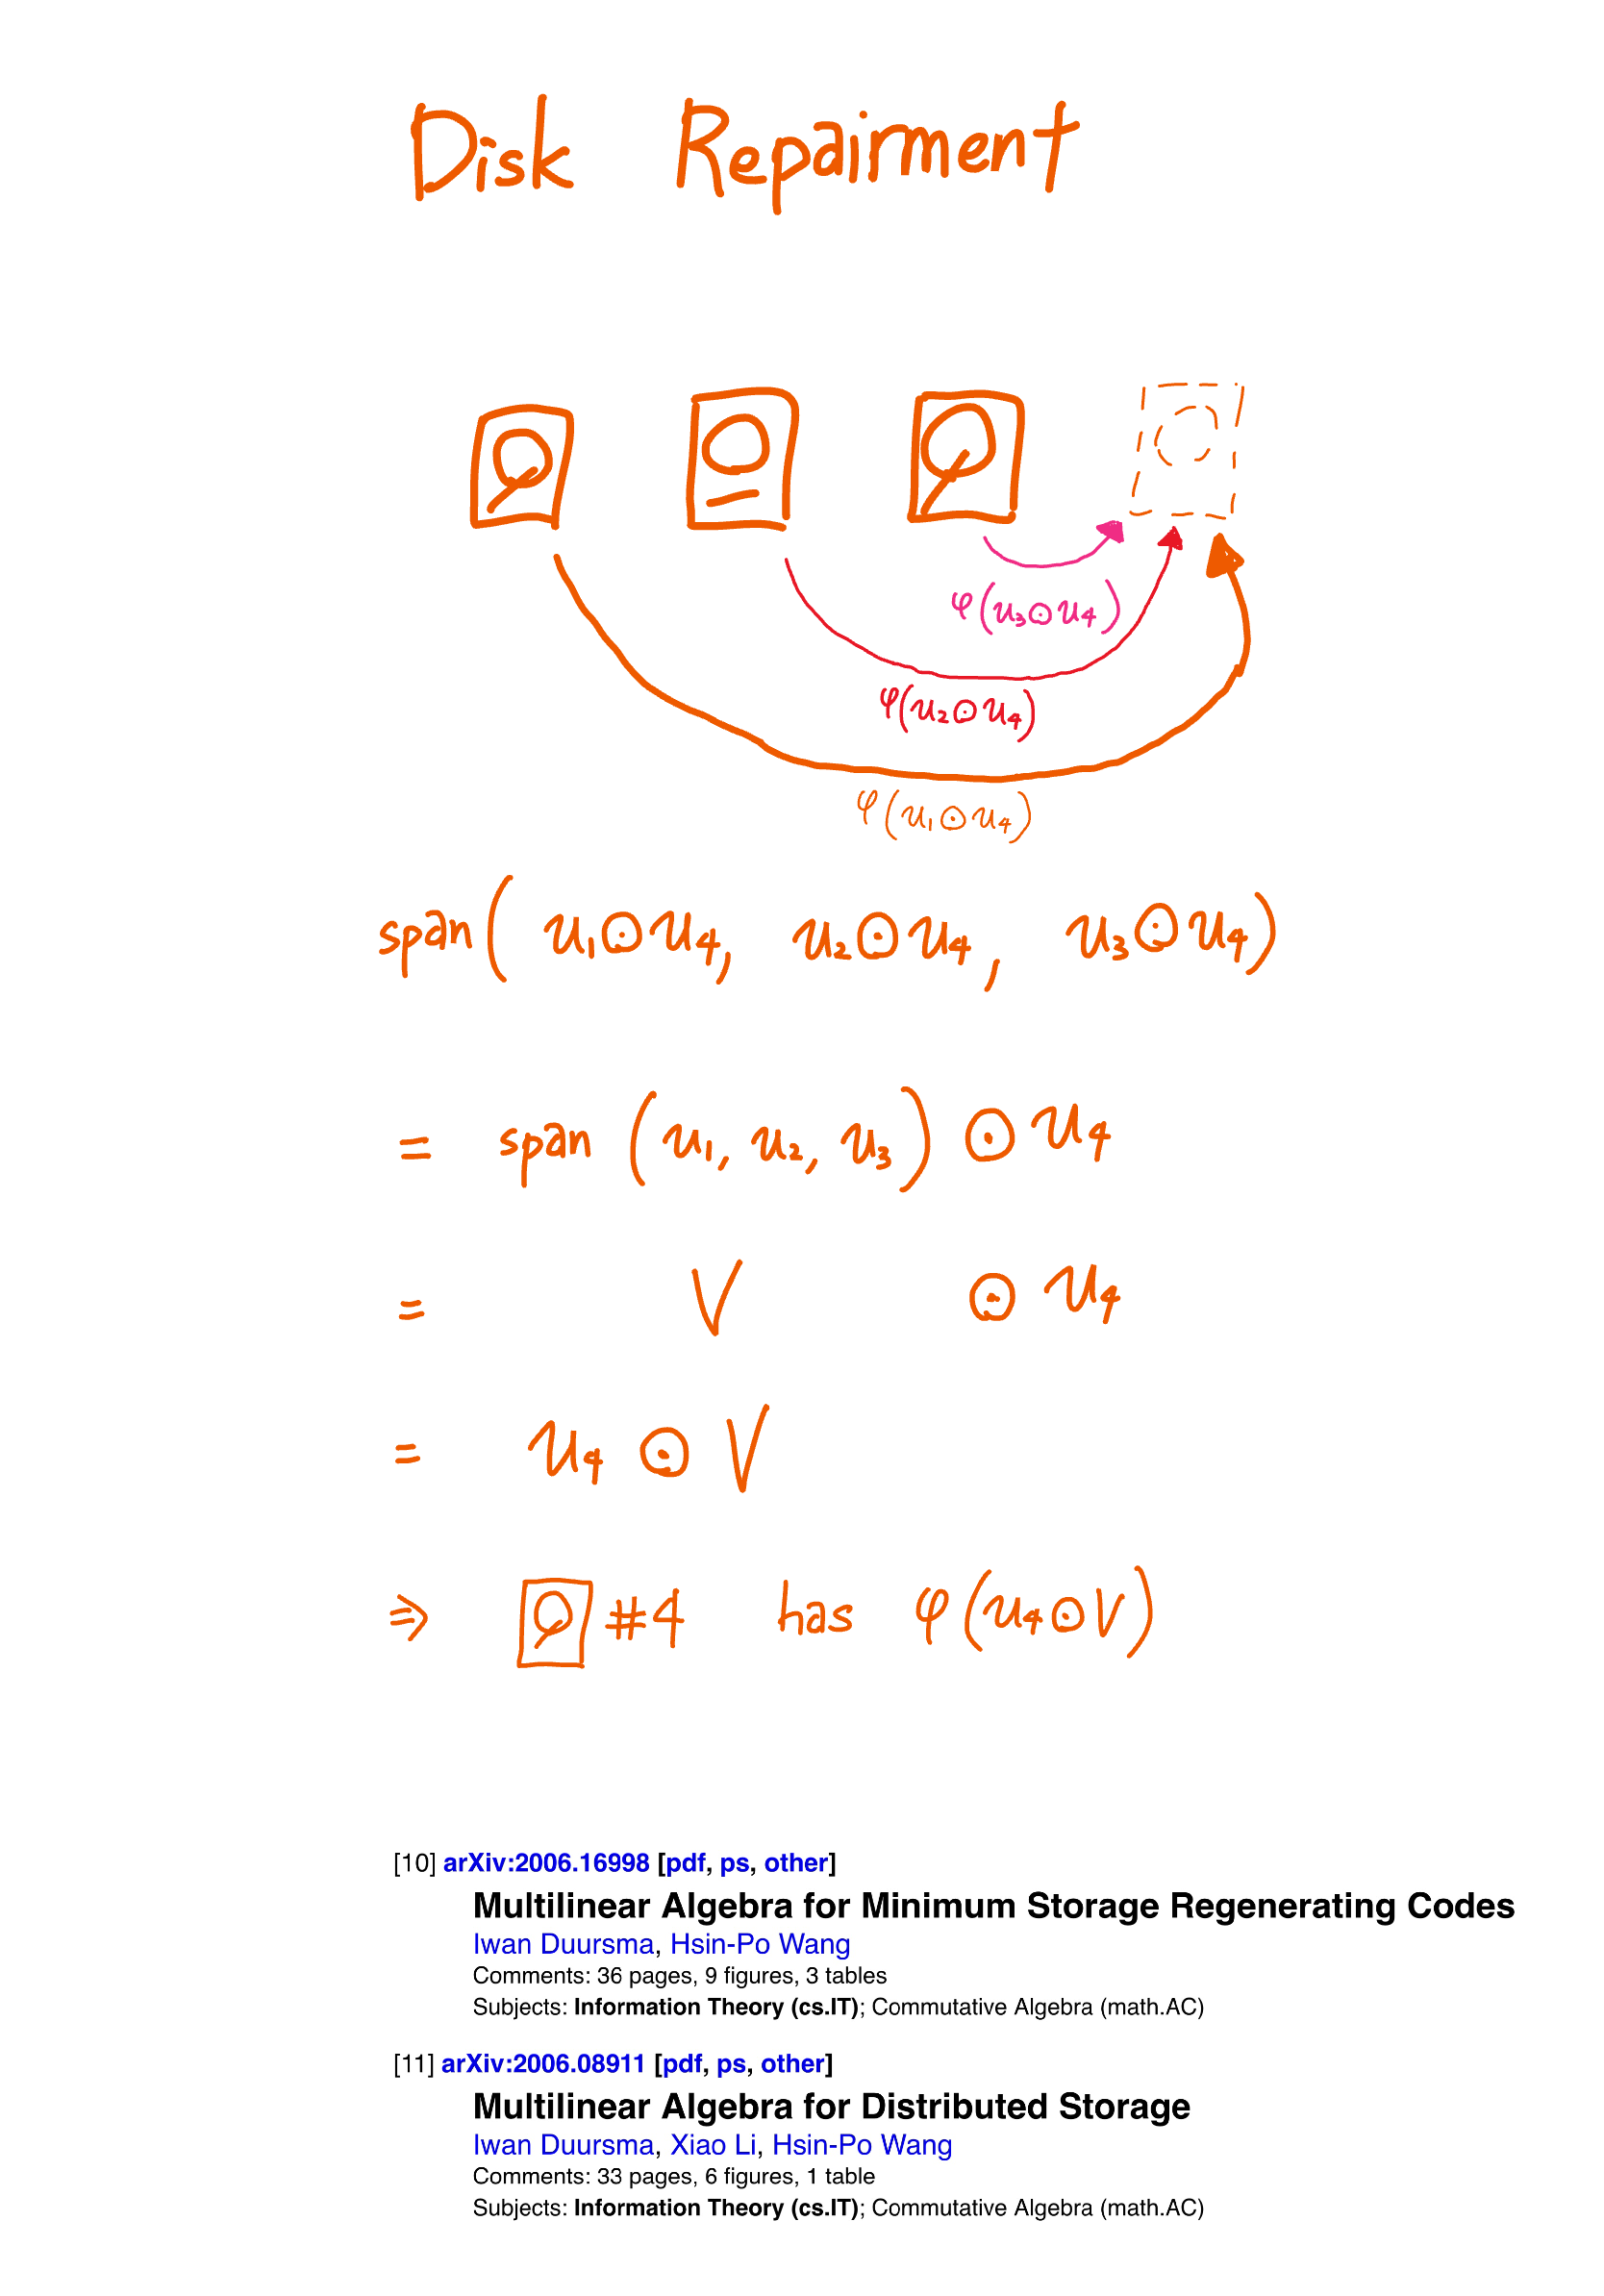 Disk Repairment
φ(u₃⊙u₄)
φ(u₂⊙u₄)
φ(u₁⊙u₄)
span( u₁⊙u₄, u₂⊙u₄, u₃⊙u₄)
= span (u₁, u₂, u₃) ⊙ u₄
= V ⊙ u₄
= u₄ ⊙ V
⇒ #4 has φ(u₄⊙V)
[10] arXiv:2006.16998 [pdf, ps, other]
Multilinear Algebra for Minimum Storage Regenerating Codes
Iwan Duursma, Hsin-Po Wang
Comments: 36 pages, 9 figures, 3 tables
Subjects: Information Theory (cs.IT); Commutative Algebra (math.AC)
[11] arXiv:2006.08911 [pdf, ps, other]
Multilinear Algebra for Distributed Storage
Iwan Duursma, Xiao Li, Hsin-Po Wang
Comments: 33 pages, 6 figures, 1 table
Subjects: Information Theory (cs.IT); Commutative Algebra (math.AC)